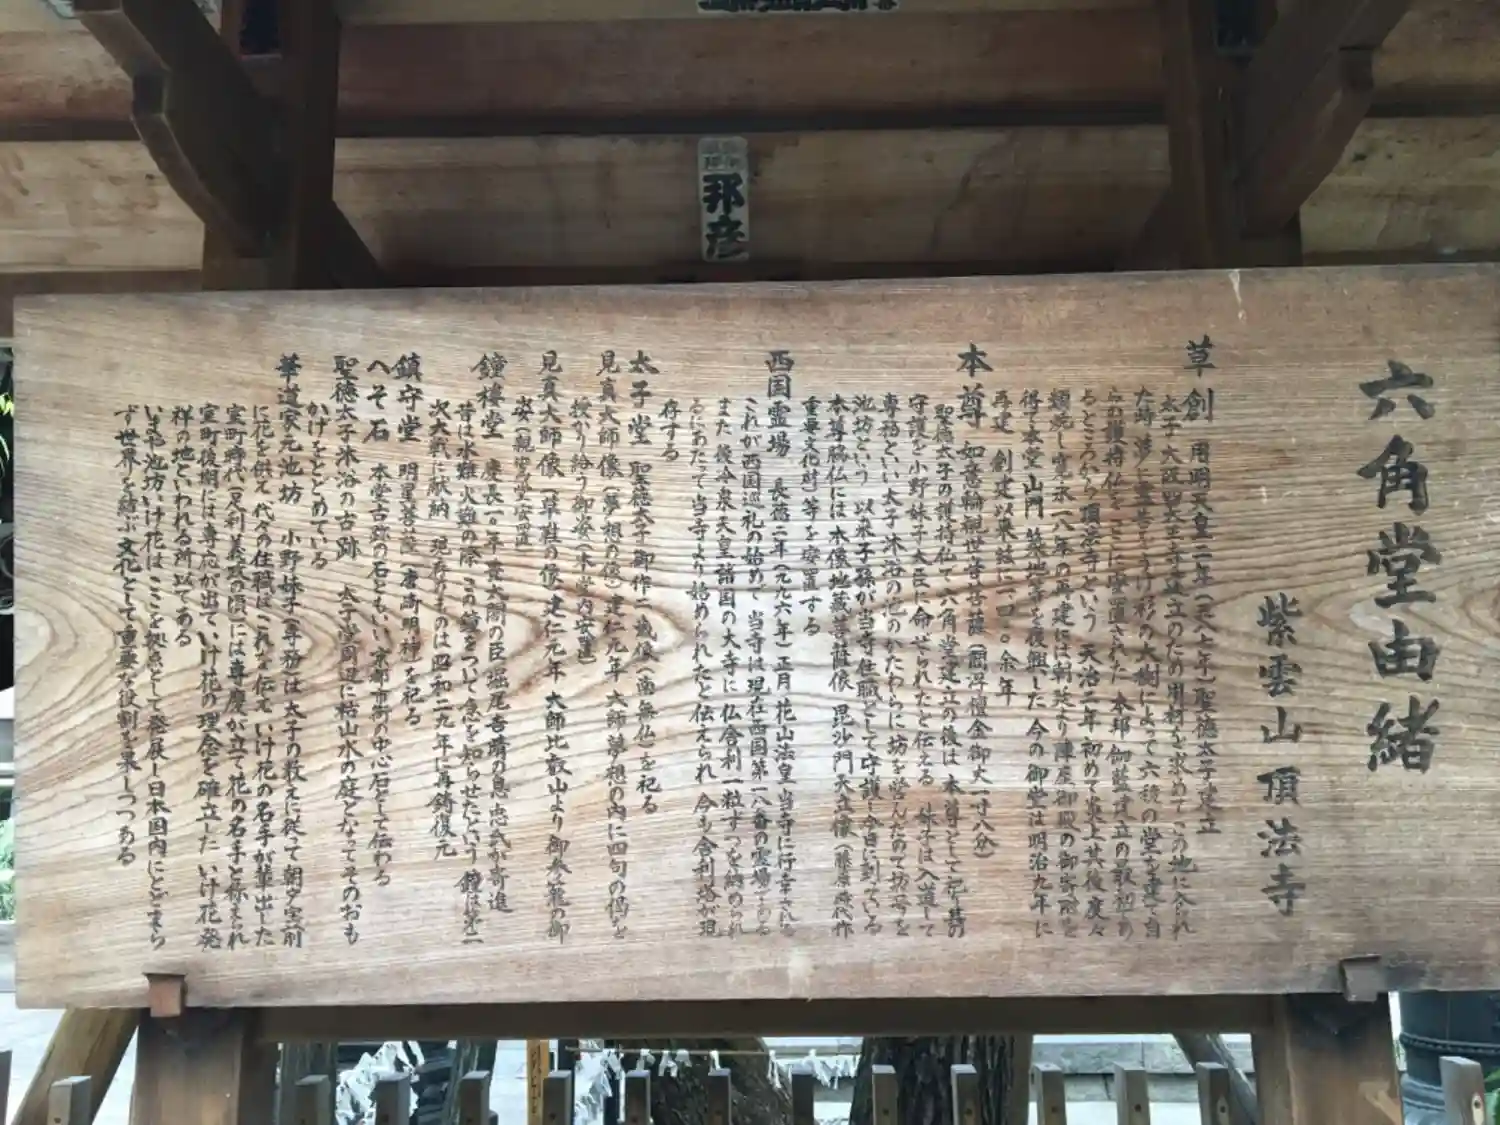 邦彦
六角堂由緒
紫雲山頂法寺
草創 用明天皇二年(五八七年)聖徳太子建立
太子大阪四天王寺建立のための用材を求めてこの地に入られ
た時 夢に霊告をうけ 杉の大樹によって六稜の堂を建て自
らの護持仏をここに安置された 本邦伽藍建立の最初であ
るところから頂法寺という 天治二年初めて炎上 其後度々
類焼し 寛永一八年の再建には 朝廷より陣座御殿の御寄附を
得て本堂 山門 築地等を復興した 今の御堂は明治九年に
再建 創建以来茲に一四〇〇余年
本尊 如意輪観世音菩薩(閻浮檀金御丈一寸八分)
聖徳太子の護持仏で 六角堂建立の後は 本尊として祀り其の
守護を小野妹子大臣に命ぜられたと伝える 妹子は入道して
専務といい 太子沐浴の池のかたわらに坊を営んだので坊号を
池坊という 以来子孫が当寺住職として守護し今日に到っている
本尊脇仏には 本像地蔵菩薩像 毘沙門天立像(藤原時代作
重要文化財)等を安置する
西国霊場 長徳二年(九九六年)正月 花山法皇 当寺に行幸される
これが西国巡礼の始めで 当寺は現在西国第一八番の霊場である
また 後冷泉天皇 諸国の大寺に仏舎利一粒ずつを納められ
るにあたって 当寺より始められたと伝えられ 今も舎利塔が現
存する
太子堂 聖徳太子 御作二歳像(南無仏)を祀る
見真大師像(夢想の像)建仁元年 大師 夢想の内に四句の偈を
授かり給う御姿(本堂内安置)
見真大師像(草鞋の像)建仁元年 大師比叡山より御参籠の御
姿(親鸞堂安置)
鐘楼堂 慶長一〇年 豊太閤の臣 堀尾吉晴の息 忠氏が寄進
昔は水難火難の際 この鐘をついて急を知らせたという 鐘は第二
次大戦に献納 現存のものは昭和二九年に再鋳復元
鎮守堂 明星菩薩 唐崎明神を祀る
へそ石 本堂古跡の石ともいい 京都市街の中心石として伝わる
聖徳太子沐浴の古跡 太子堂周辺に枯山水の庭となってそのおも
かげをとどめている
華道家元池坊 小野妹子(専務)は太子の教えに従って朝夕宝前
に花を供え 代々の住職はこれを伝えて いけ花の名手が輩出した
室町時代(足利義政の頃)には専慶が立て花の名手と称せられ
室町後期には専応が出ていけ花の理念を確立した いけ花発
祥の地といわれる所以である
いまや池坊いけ花は ここを拠点として発展し 日本国内にとどまら
ず世界を結ぶ文化として重要な役割を果しつつある